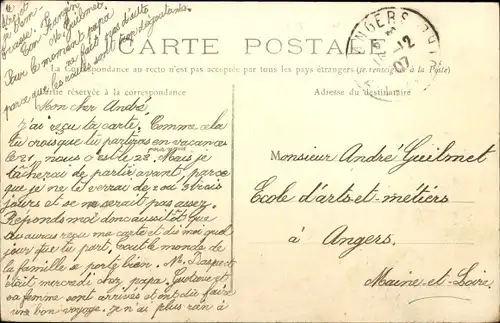 CARTE POSTALE
La Correspondance au recto n'est pas acceptée par tous les pays étrangers (se renseigner à la Poste)
Partie réservée à la correspondance
Adresse du destinataire
ANGERS
12
07
Mon cher André
j'ai reçu ta carte. Comme cela
tu crois que tu partiras en vacances
le 21 nous c'est le 22. Mais je
tâcherai de partir avant, parce
que je ne te verrai de 2 ou 3 trois
jours et ce ne serait pas assez.
Réponds moi donc aussitôt que
tu auras reçu ma carte et dis moi quel
jour que tu part. Tout le monde de
la famille se porte bien. M. Daspect
était mercredi chez papa. Gustave et
sa femme sont arrivés et ont dû faire
une bon voyage. Je n'ai plus rien à
Ton
M. Guilmet
Pour le moment papa
ne fait pas d'auto
parce que les routes sont trop dégoutantes.
Monsieur André Guilmet
Ecole d'arts-et-métiers
à Angers.
Maine-et-Loire